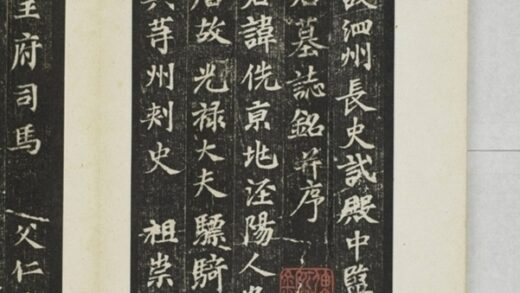 泗州長史試殿中監
墓誌銘并序
諱侁京兆涇陽人
故光祿大夫驃騎
等州刾史 祖崇
王府司馬 父仁